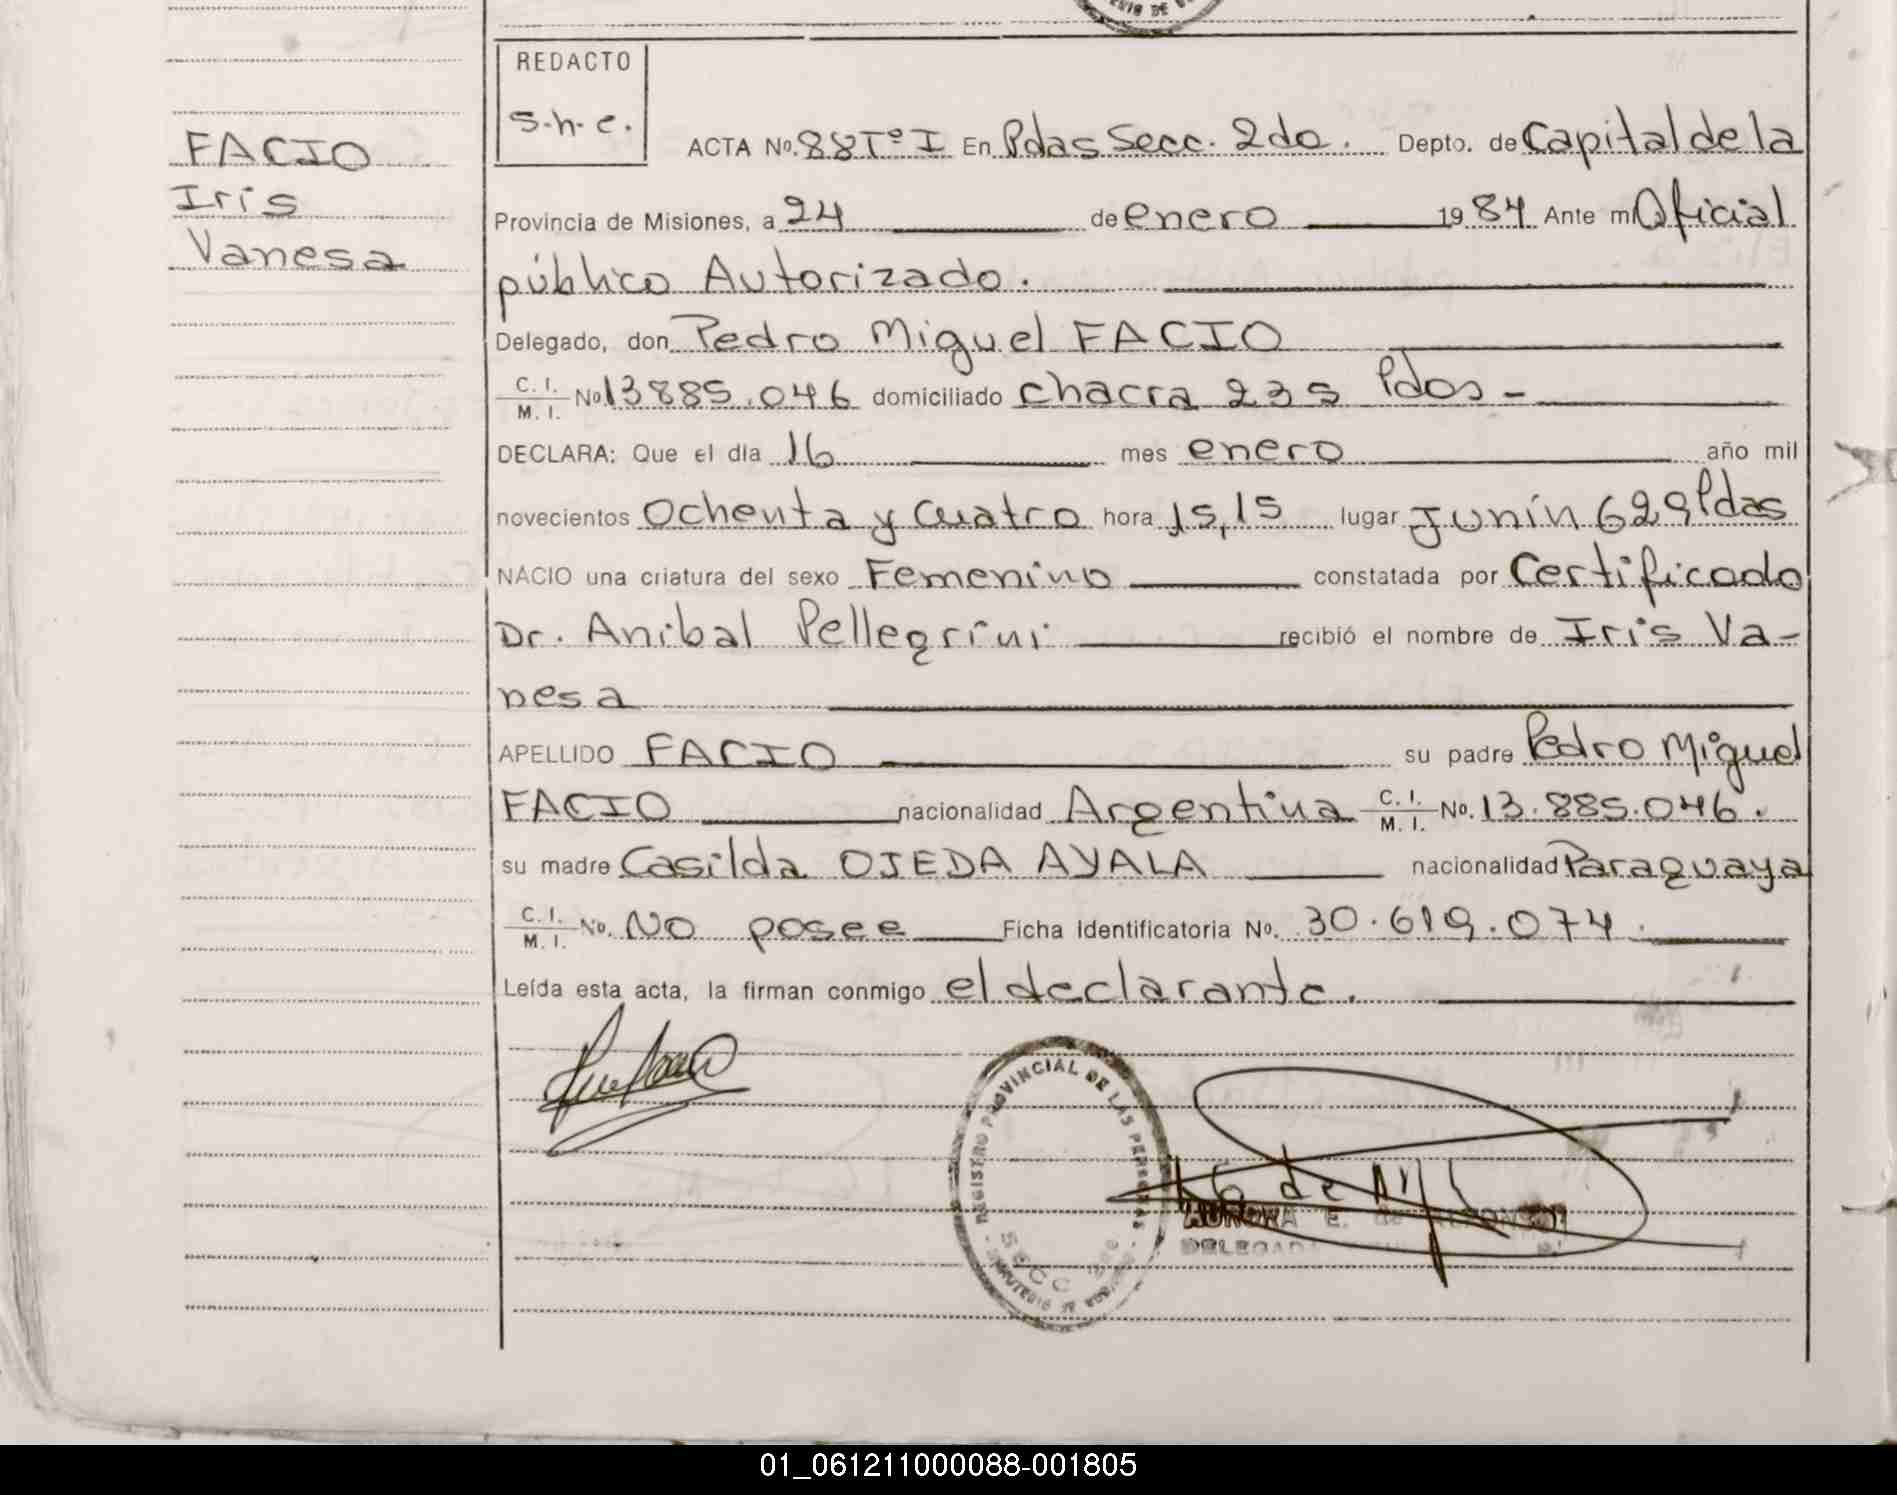 REDACTO
S.h.e.
FACIO
Iris
Vanesa
ACTA No. 88 Tº I En Pdas Secc. 2do. Depto. de Capital de la
Provincia de Misiones, a 24 de enero 1984 Ante mi Oficial
público Autorizado.
Delegado, don Pedro Miguel FACIO
C. I. M. I. No. 13885.046 domiciliado chacra 235 Pdos -
DECLARA: Que el día 16 mes enero año mil
novecientos Ochenta y Cuatro hora 15,15 lugar Junín 629 Pdas
NACIO una criatura del sexo Femenino constatada por Certificado
Dr. Anibal Pellegrini recibió el nombre de Iris Va-
nesa
APELLIDO FACIO su padre Pedro Miguel
FACIO nacionalidad Argentina C. I. M. I. No. 13.885.046.
su madre Casilda OJEDA AYALA nacionalidad Paraguaya
C. I. M. I. No. No posee Ficha identificatoria No. 30.619.074.
Leída esta acta, la firman conmigo el declarante.
REGISTRO PROVINCIAL DE LAS PERSONAS
SECC
AURORA E. de
DELEGADA
01_061211000088-001805